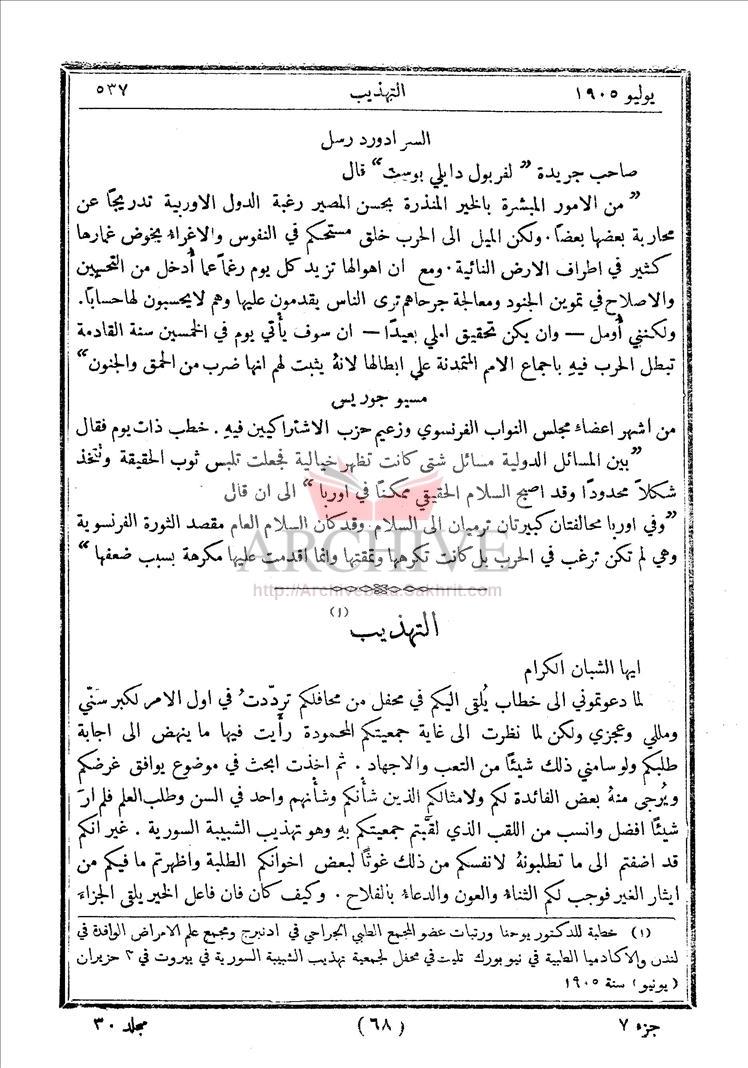 يوليو ١٩٠٥ التهذيب ٥٣٧
السر ادورد رسل
صاحب جريدة ” لفربول دايلي بوست “ قال
” من الامور المبشرة بالخير المنذرة بحسن المصير رغبة الدول الاوربية تدريجًا عن
محاربة بعضها بعضًا . ولكن الميل الى الحرب خلق مستحكم في النفوس والاغراءُ يخوض غمارها
كثير في اطراف الارض النائية . ومع ان اهوالها تزيد كل يوم رغمًا عما أُدخل من التحسين
والاصلاح في تموين الجنود ومعالجة جرحاهم ترى الناس يقدمون عليها وهم لايحسبون لهاحسابًا.
ولكنني أُومل — وان يكن تحقيق املي بعيدًا — ان سوف يأتي يوم في الخمسين سنة القادمة
تبطل الحرب فيهِ باجماع الامم المتمدنة علي ابطالها لانهُ يثبت لهم انها ضرب من الحمق والجنون “
مسيو جوريس
من اشهر اعضاء مجلس النواب الفرنسوي وزعيم حزب الاشتراكيين فيهِ . خطب ذات يوم فقال
” بين المسائل الدولية مسائل شتى كانت تظهر خيالية فجعلت تلبس ثوب الحقيقة وتتخذ
شكلاً محدودًا وقد اصبح السلام الحقيقي ممكنًا في اوربا “ الى ان قال
”وفي اوربا محالفتان كبيرتان ترميان الى السلام وقد كان السلام العام مقصد الثورة الفرنسوية
وهي لم تكن ترغب في الحرب بل كانت تكرهها وتمقتها وانما اقدمت عليها مكرهة بسبب ضعفها “
ARCHIVE
http://Archivebeta.Sakhrit.com
التهذيب (١)
ايها الشبان الكرام
لما دعوتموني الى خطاب يُلقى اليكم في محفل من محافلكم تردّدتُ في اول الامر لكبر سنّي
ومللي وعجزي ولكن لما نظرت الى غاية جمعيتكم المحمودة رأَيت فيها ما ينهض الى اجابة
طلبكم ولو سامني ذلك شيئًا من التعب والاجهاد . ثم اخذت ابحث في موضوع يوافق غرضكم
ويُرجى منهُ بعض الفائدة لكم ولامثالكم الذين شأنكم وشأنهم واحد في السن وطلب العلم فلم ارَ
شيئًا افضل وانسب من اللقب الذي لقَّبتم جمعيتكم بهِ وهو تهذيب الشبيبة السورية . غير انكم
قد اضفتم الى ما تطلبونهُ لانفسكم من ذلك غوثًا لبعض اخوانكم الطلبة واظهرتم ما فيكم من
ايثار الغير فوجب لكم الثناءُ والعون والدعاءُ بالفلاح . وكيف كان فان فاعل الخير يلقى الجزاءَ
(١) خطبة للدكتور يوحنا ورتبات عضو المجمع الطبي الجراحي في ادنبرج ومجمع علم الامراض الوافدة في
لندن والاكادميا الطبية في نيو يورك تليت في محفل لجمعية تهذيب الشبيبة السورية في بيروت في ٣ حزيران
( يونيو ) سنة ١٩٠٥
جزء ٧ (٦٨) مجلد ٣٠